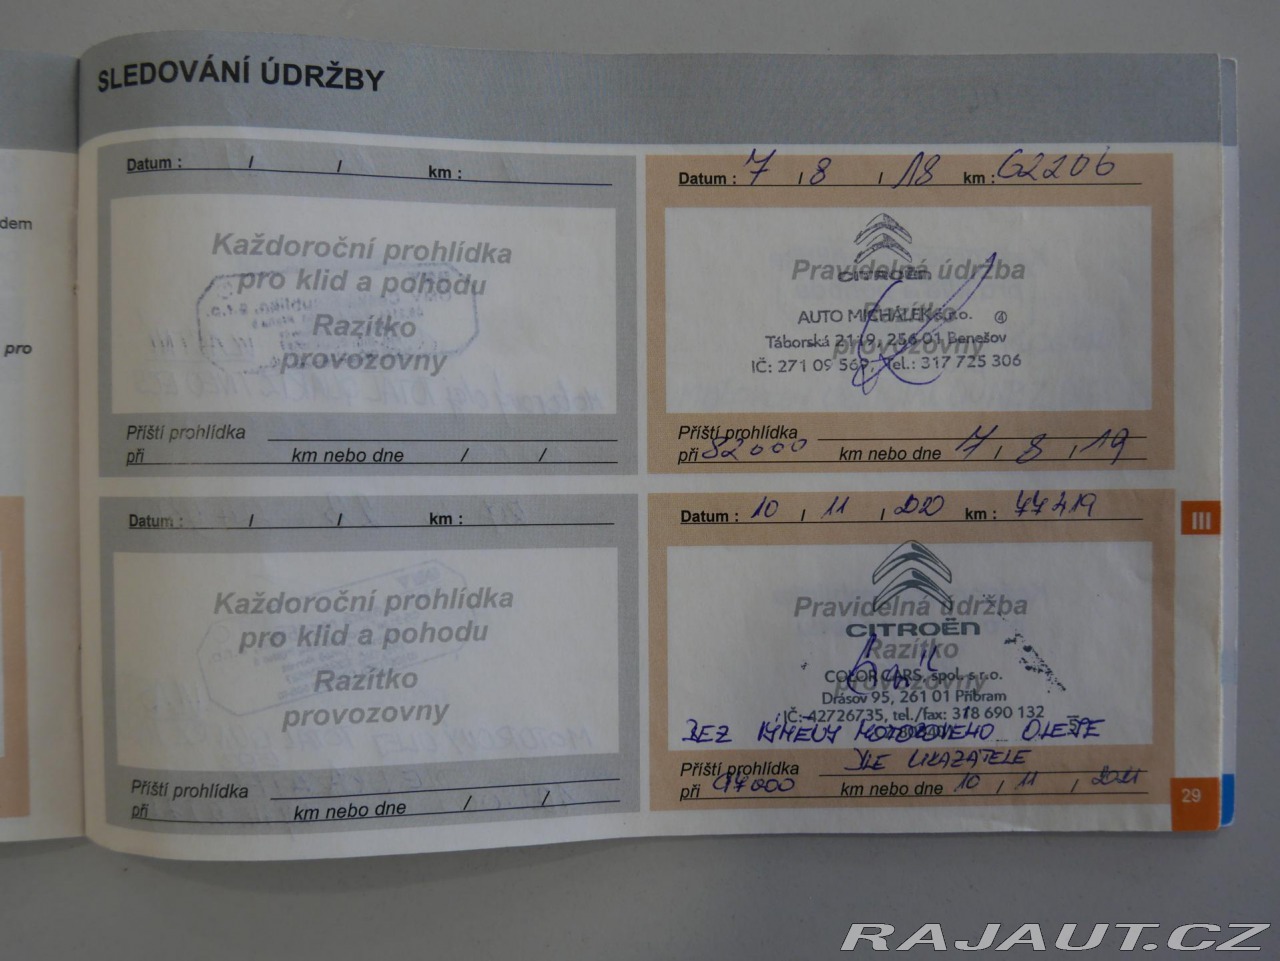 SLEDOVÁNÍ ÚDRŽBY
dem
pro
Datum : / / km :
Každoroční prohlídka
pro klid a pohodu
Razítko
provozovny
Příští prohlídka
při km nebo dne / /
Datum : 7 / 8 / 18 km : 62206
Pravidelná údržba
CITROËN
Razítko
AUTO MICHÁLEK s.r.o. 4
Táborská 2119, 256 01 Benešov
provozovny
IČ: 271 09 569, Tel.: 317 725 306
Příští prohlídka
při 82000 km nebo dne 7 / 8 / 19
Datum : / / km :
Každoroční prohlídka
pro klid a pohodu
Razítko
provozovny
Příští prohlídka
při km nebo dne / /
Datum : 10 / 11 / 2020 km : 77419
Pravidelná údržba
CITROËN
Razítko
COLOR CARS, spol. s r.o.
provozovny
Drásov 95, 261 01 Příbram
IČ: 42726735, tel./fax: 318 690 132
BEZ VÝMĚNY MOTOROVÉHO OLEJE
DLE UKAZATELE
Příští prohlídka
při 97000 km nebo dne 10 / 11 / 2021
III
29
RAJAUT.CZ